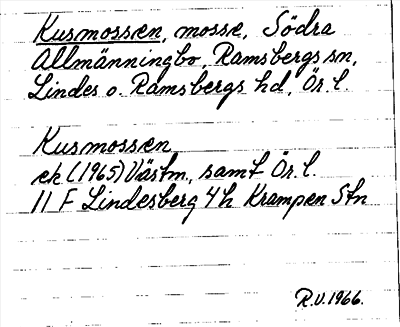 Kusmossen, mosse, Södra
Allmänningbo, Ramsbergs sn,
Lindes o. Ramsbergs hd, Ör. l.
Kusmossen
ek (1965) Västm., samt Ör. l.
11 F Lindesberg 4 h Krampen Stn
R.V. 1966.